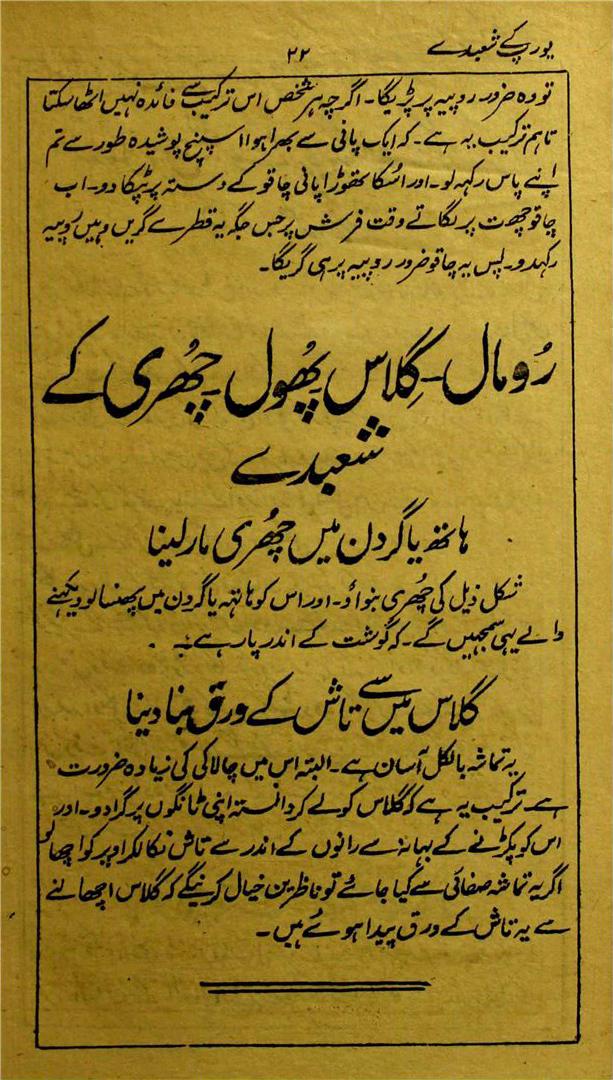 یورپ کے شعبدے ۲۲
تو وہ ضرور روپیہ پر پڑیگا۔ اگرچہ ہر شخص اس ترکیب سے فائدہ نہیں اٹھا سکتا
تاہم ترکیب یہ ہے۔ کہ ایک پانی سے بھرا ہوا اسپنج پوشیدہ طور سے تم
اپنے پاس رکہہ لو۔ اور اسکا تھوڑا پانی چاقو کے دستہ پر ٹپکا دو۔ اب
چاقو چھت پر لگاتے وقت فرش پر جس جگہ یہ قطرے گریں وہیں روپیہ
رکہدو۔ پس یہ چاقو ضرور روپیہ پر ہی گریگا۔
رُومال۔ گِلاس پھُول۔ چھُری کے
شعبدے
ہاتھ یا گردن میں چھُری مار لینا
شکل ذیل کی چھُری بنواؤ۔ اور اس کو ہاتہہ یا گردن میں پھنسا لو دیکہنے
والے یہی سمجہیں گے۔ کہ گوشت کے اندر پار ہے۔
گلاس میں سے تاش کے ورق بنا دینا
یہ تماشہ بالکل آسان ہے۔ البتہ اس میں چالاکی کی زیادہ ضرورت
ہے۔ ترکیب یہ ہے کہ گلاس کو لے کر دانستہ اپنی ٹانگوں پر گرا دو۔ اور
اس کو پکڑنے کے بہانہ سے رانوں کے اندر سے تاش نکالکر اوپر کو اچھالو
اگر یہ تماشہ صفائی سے کیا جائے تو ناظرین خیال کرینگے کہ گلاس اچھالنے
سے یہ تاش کے ورق پیدا ہوئے ہیں۔